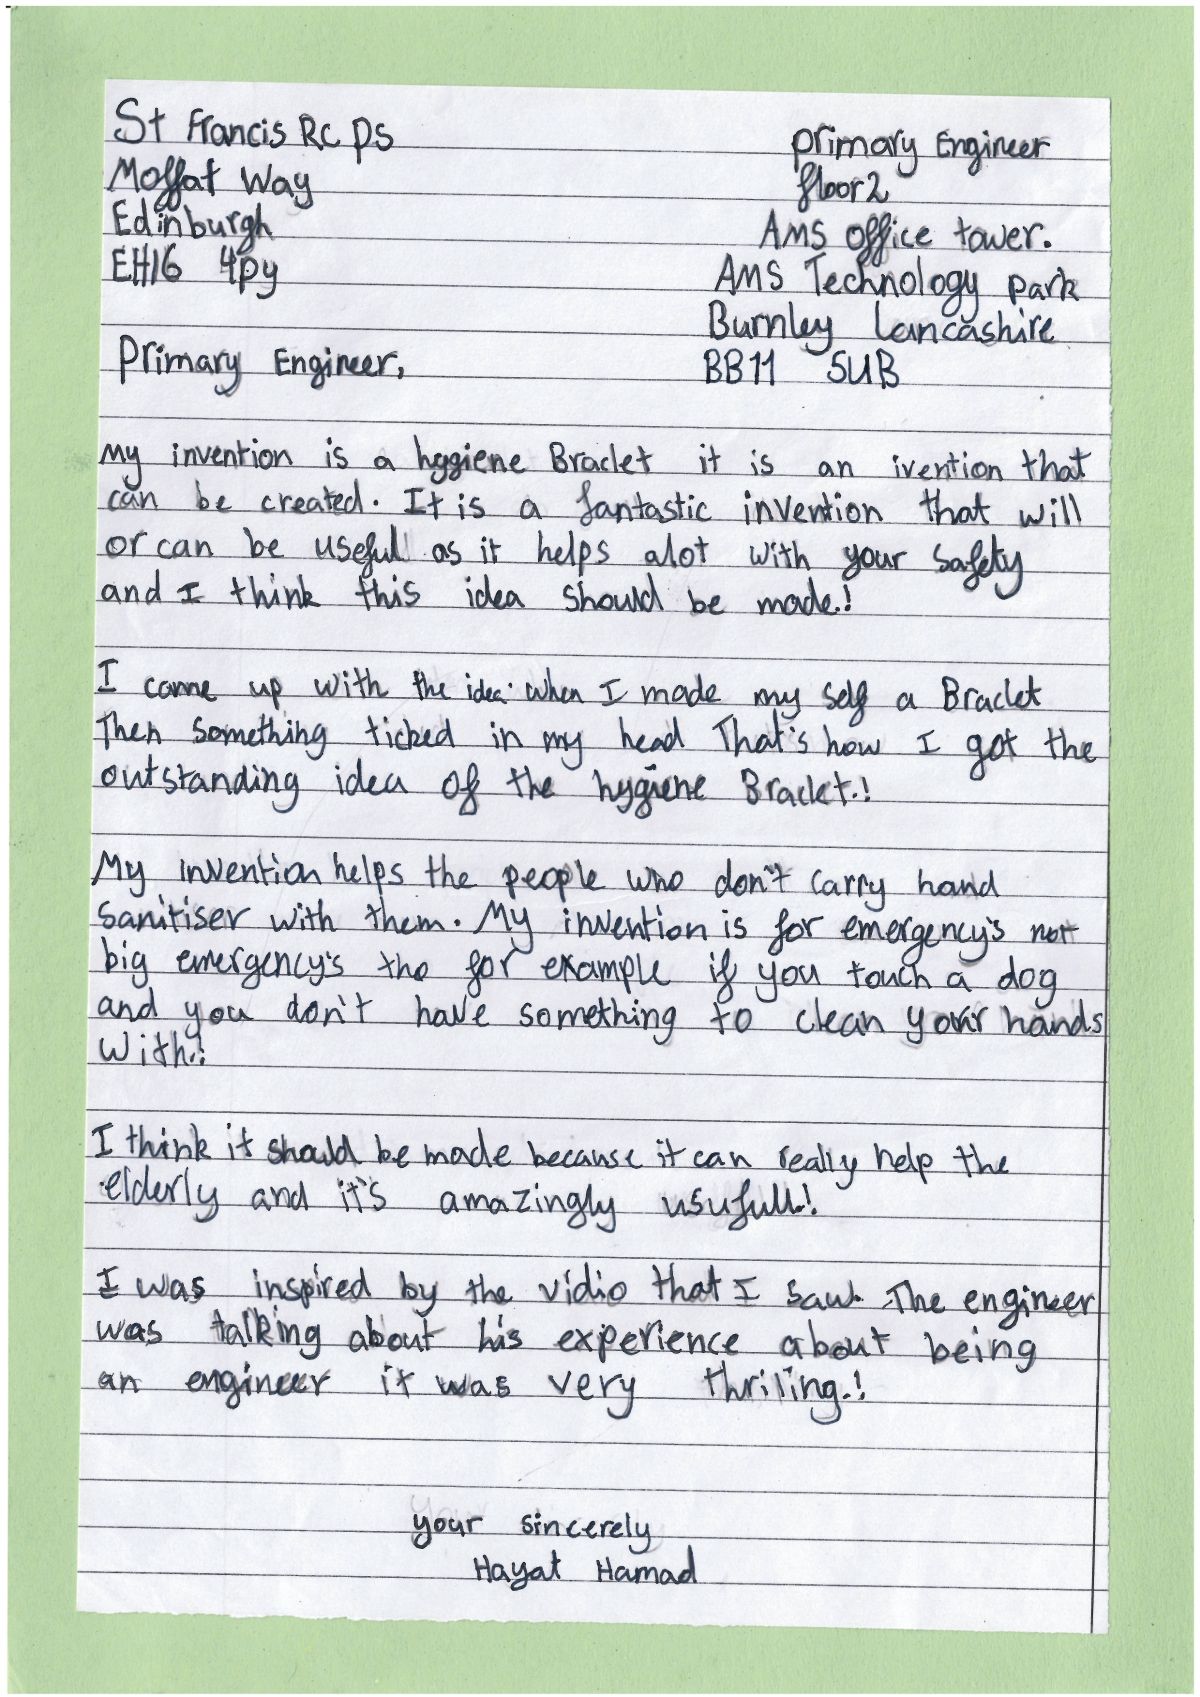 St Francis Rc Ps
Moffat Way
Edinburgh
EH16 4py
primary Engineer
floor 2
AMS office tower.
AMS Technology park
Burnley Lancashire
BB11 5UB
Primary Engineer,
My invention is a hygiene Braclet it is an ivention that
can be created. It is a fantastic invention that will
or can be useful as it helps alot with your safety
and I think this idea should be made.!
I came up with the idea. when I made my self a Braclet
Then something ticked in my head That's how I got the
outstanding idea of the hygiene Braclet.!
My invention helps the people who don't carry hand
sanitiser with them. My invention is for emergency's not
big emergency's tho for example if you touch a dog
and you don't have something to clean your hands
with.!
I think it should be made because it can really help the
elderly and it's amazingly usufull.!
I was inspired by the vidio that I saw. The engineer
was talking about his experience about being
an engineer it was very thriling.!
your sincerely
Hayat Hamad